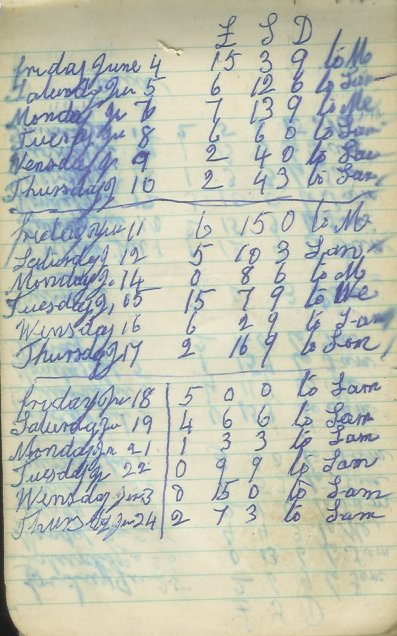 £ S D
friday June 4 15 3 9 to Me
Saturday Jun 5 6 12 6 to Sam
Monday Ju 7 13 9 to Me
Tuesday Ju 8 6 6 0 to Sam
Wensday Ju 9 2 4 0 to Sam
Thursday J 10 2 4 3 to Sam
friday June 11 6 15 0 to M
Saturday J 12 5 10 3 Sam
Monday J 14 0 8 6 to M
Tuesday J, 15 15 7 9 to We
Wensday 16 6 2 9 to Sam
Thursday J 17 2 16 9 to Sam
friday June 18 5 0 0 to Sam
Saturday Ju 19 4 6 6 to Sam
Monday Ju 21 1 3 3 to Sam
Tuesday Ju 22 0 9 9 to Sam
Wensday Jun 3 0 15 0 to Sam
Thursday Jun 24 2 7 3 to Sam